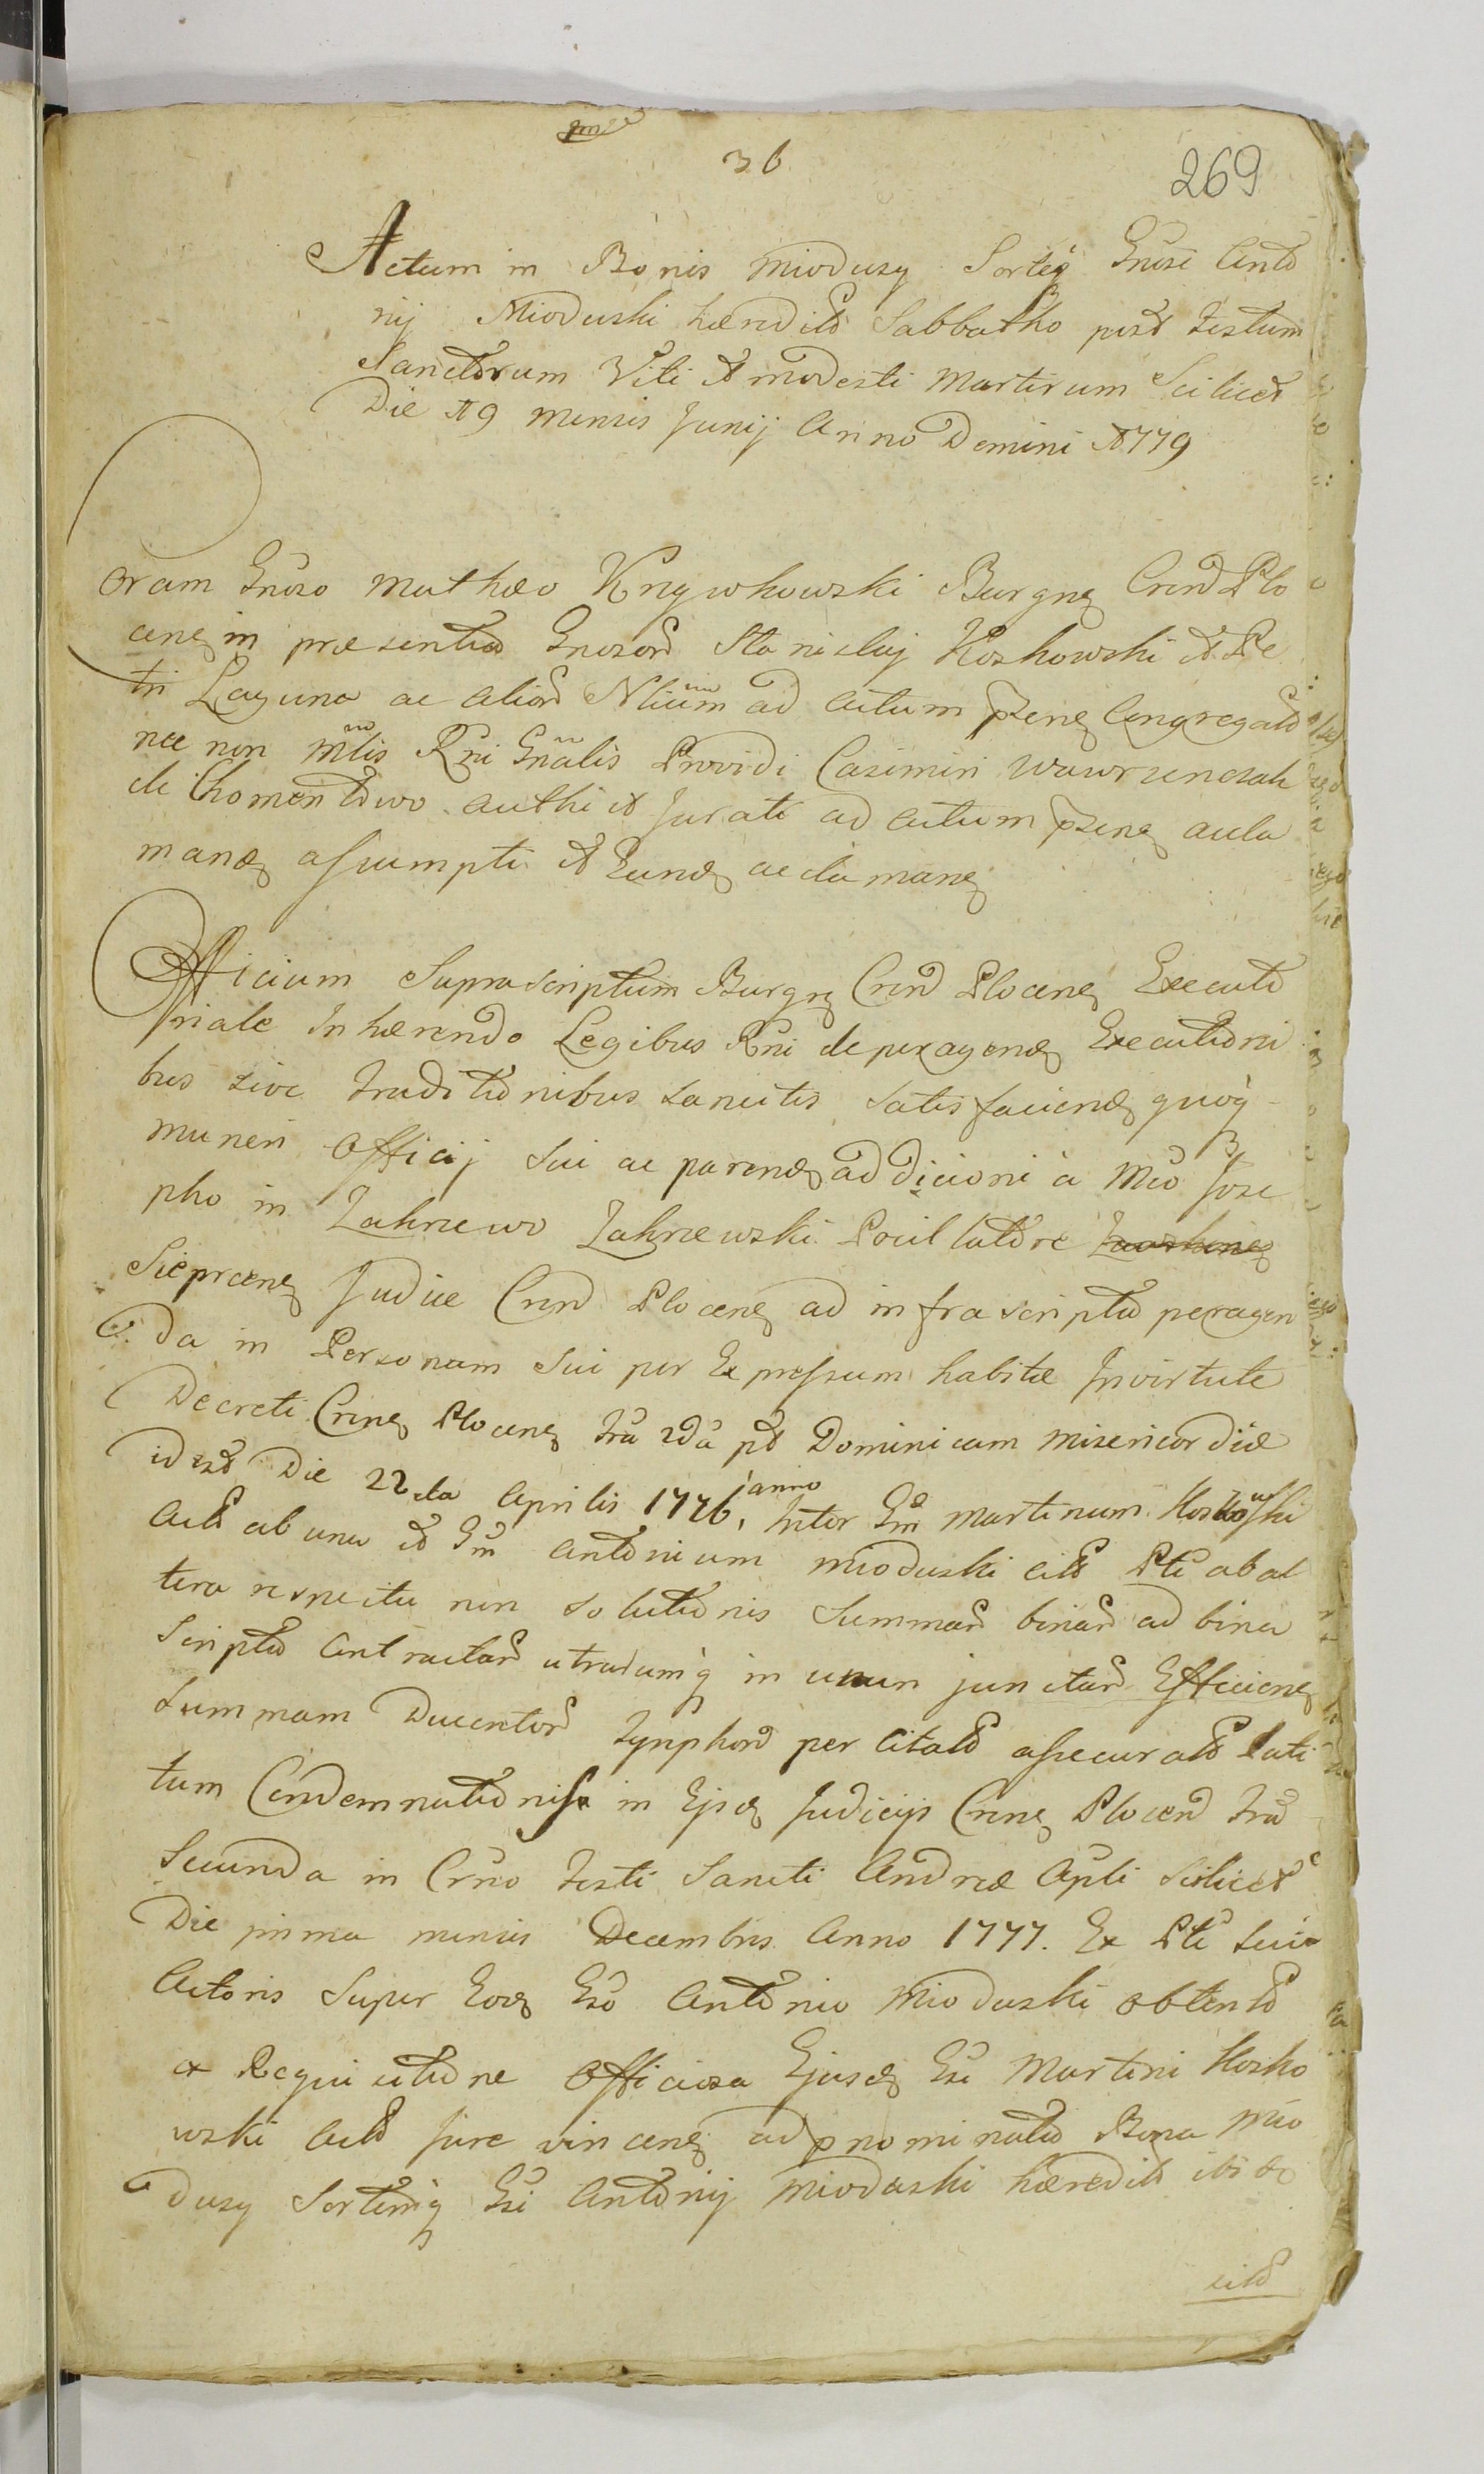 36
269
Actum in Bonis Miodusy Sorteq Gnosi Anto
nij Mioduski hæredit Sabbatho post Festum
Sanctorum Viti et Modesti Martirum Scilicet
Die 19 Mensis Junij Anno Domini 1779
Coram Gnoso Mathæo Krzywkowski Burgne Crend Plo
cene in præsentia Gnosor Stanislaj Koskowski et Pe
tri Laguna ac alior Nlium ad actum psene Congregat
nec non Mlis Rni Gnalis Providi Casimiri Wawrzenczak
de Chomentowo authi et Jurati ad actum psene acla
mand assumpti et Eund aclamane
Officium Suprascriptum Burgne Crend Plocene Executo
riale Inhærendo Legibus Rni de peragend Executioni
bus sive traditionibus sancitis satisfaciend quoq
muneri Officij Sui ac parend addicioni a Mco Jose
pho in Zakrzewo Zakrzewski Pocillatore
Sieprcene Judice Crend Plocene ad infrascripta peragen
da in Personam Sui per Expressum habitæ Invirtute
Decreti Crene Plocene fra 2da pt Dominicam Misericordiæ
id est Die 22da Aprilis 1776 anno Inter Gm Martinum Koskowski
Act ab una et Gm Antonium Mioduski cit Pte ab al
tera respectu non solutionis Summar binar ad bina
Scripta Contractar utrarumq in unum junctar Efficiene
Summam Ducentor Tynphor per Citat assecurat lati
tum Condemnationis in Ejsd Judicijs Crene Plocen fra
Secunda in Crno Festi Sancti Andreæ Apli Scilicet
Die prima mensis Decembris Anno 1777. Ex Pte sui
Actoris Super Eod Gso Antonio Mioduski obtent
ex Requisitione Officiosa Ejusd Gsi Martini Kosko
wski Act Jure vincene ad pnominata Bona Mio
dusy Sortemq Gsi Antonij Mioduski hæredit
cit